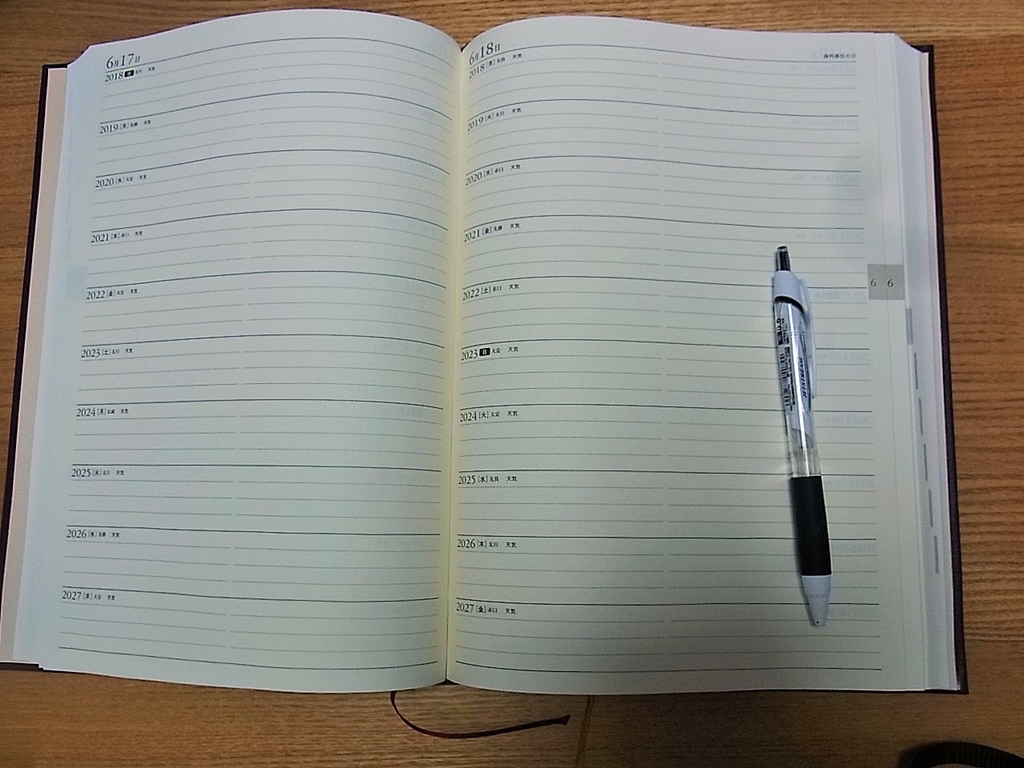 6月17日
2018 日 友引 天気
2019 [月] 先勝 天気
2020 [水] 大安 天気
2021 [木] 赤口 天気
2022 [金] 天気
2023 [土] 天気
2024 [月] 仏滅 天気
2025 [火] 天気
2026 [水] 先勝 天気
2027 [木] 大安 天気
6月18日
2018 [月] 先負 天気
2019 [火] 友引 天気
2020 [木] 赤口 天気
2021 [金] 先勝 天気
2022 [土] 赤口 天気
2023 日 大安 天気
2024 [火] 大安 天気
2025 [水] 先負 天気
2026 [木] 友引 天気
2027 [金] 赤口 天気
海外移住の日
6 6